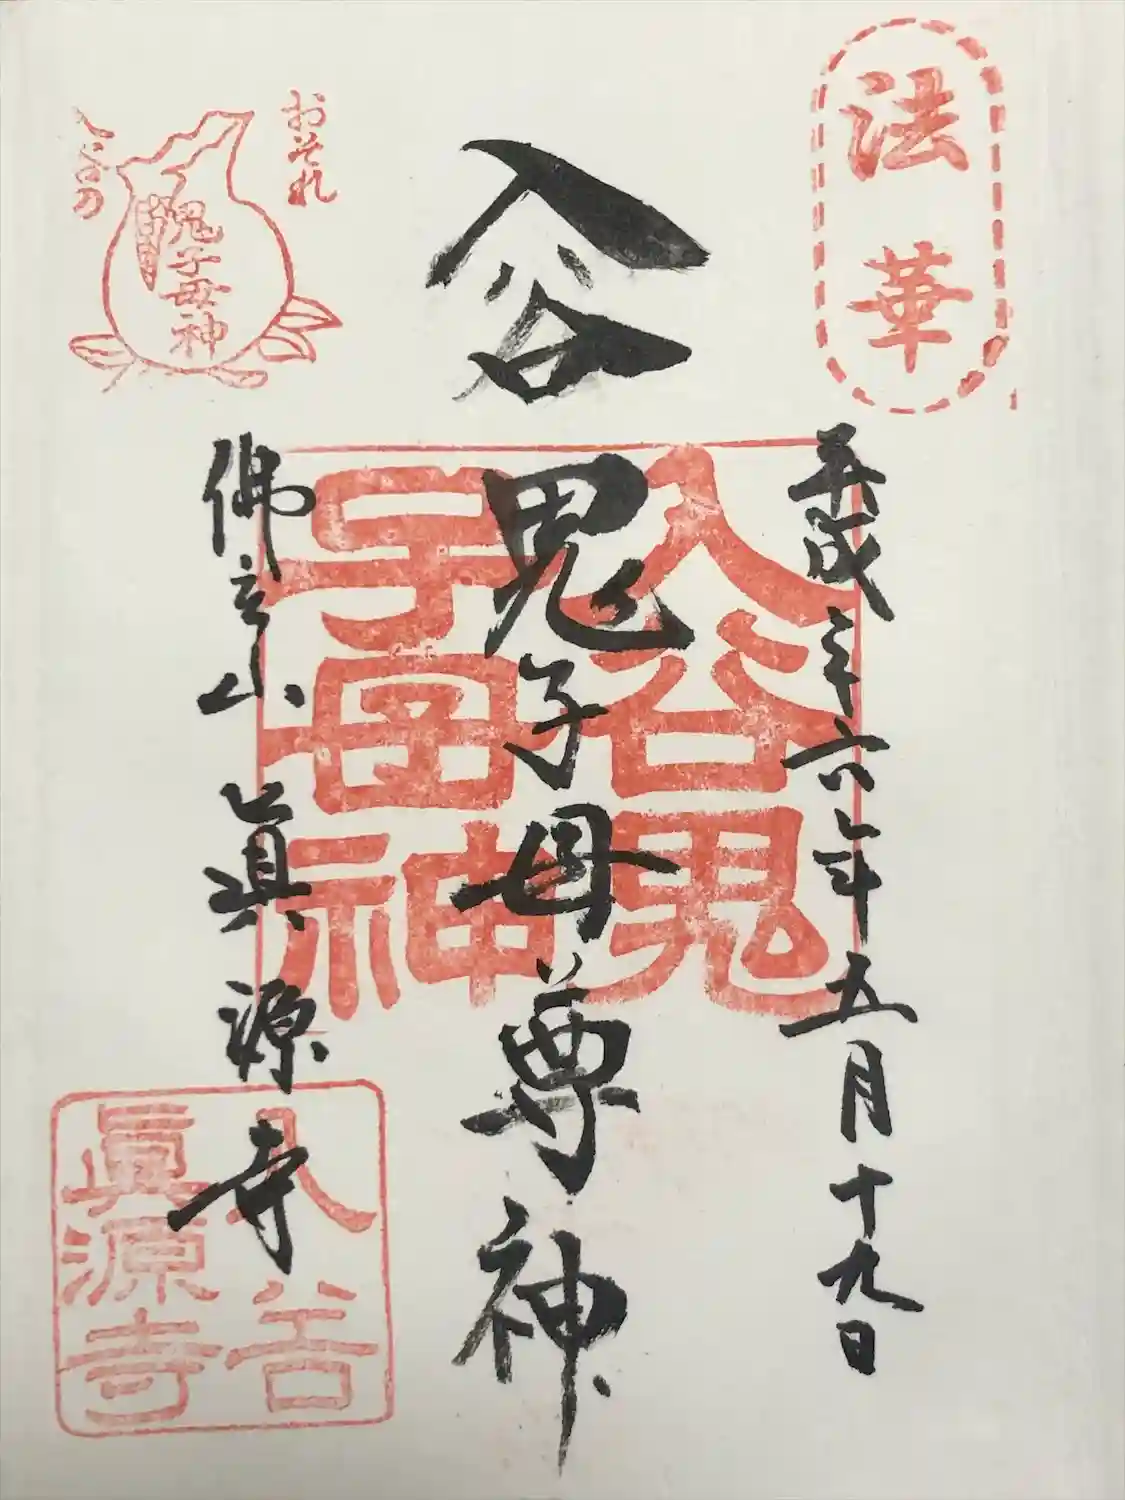 法華
平成二十六年五月十九日
入谷
鬼子母尊神
入谷鬼
子母神
おそれ
入谷の
鬼子母神
佛立山 眞源寺
入谷
眞源寺